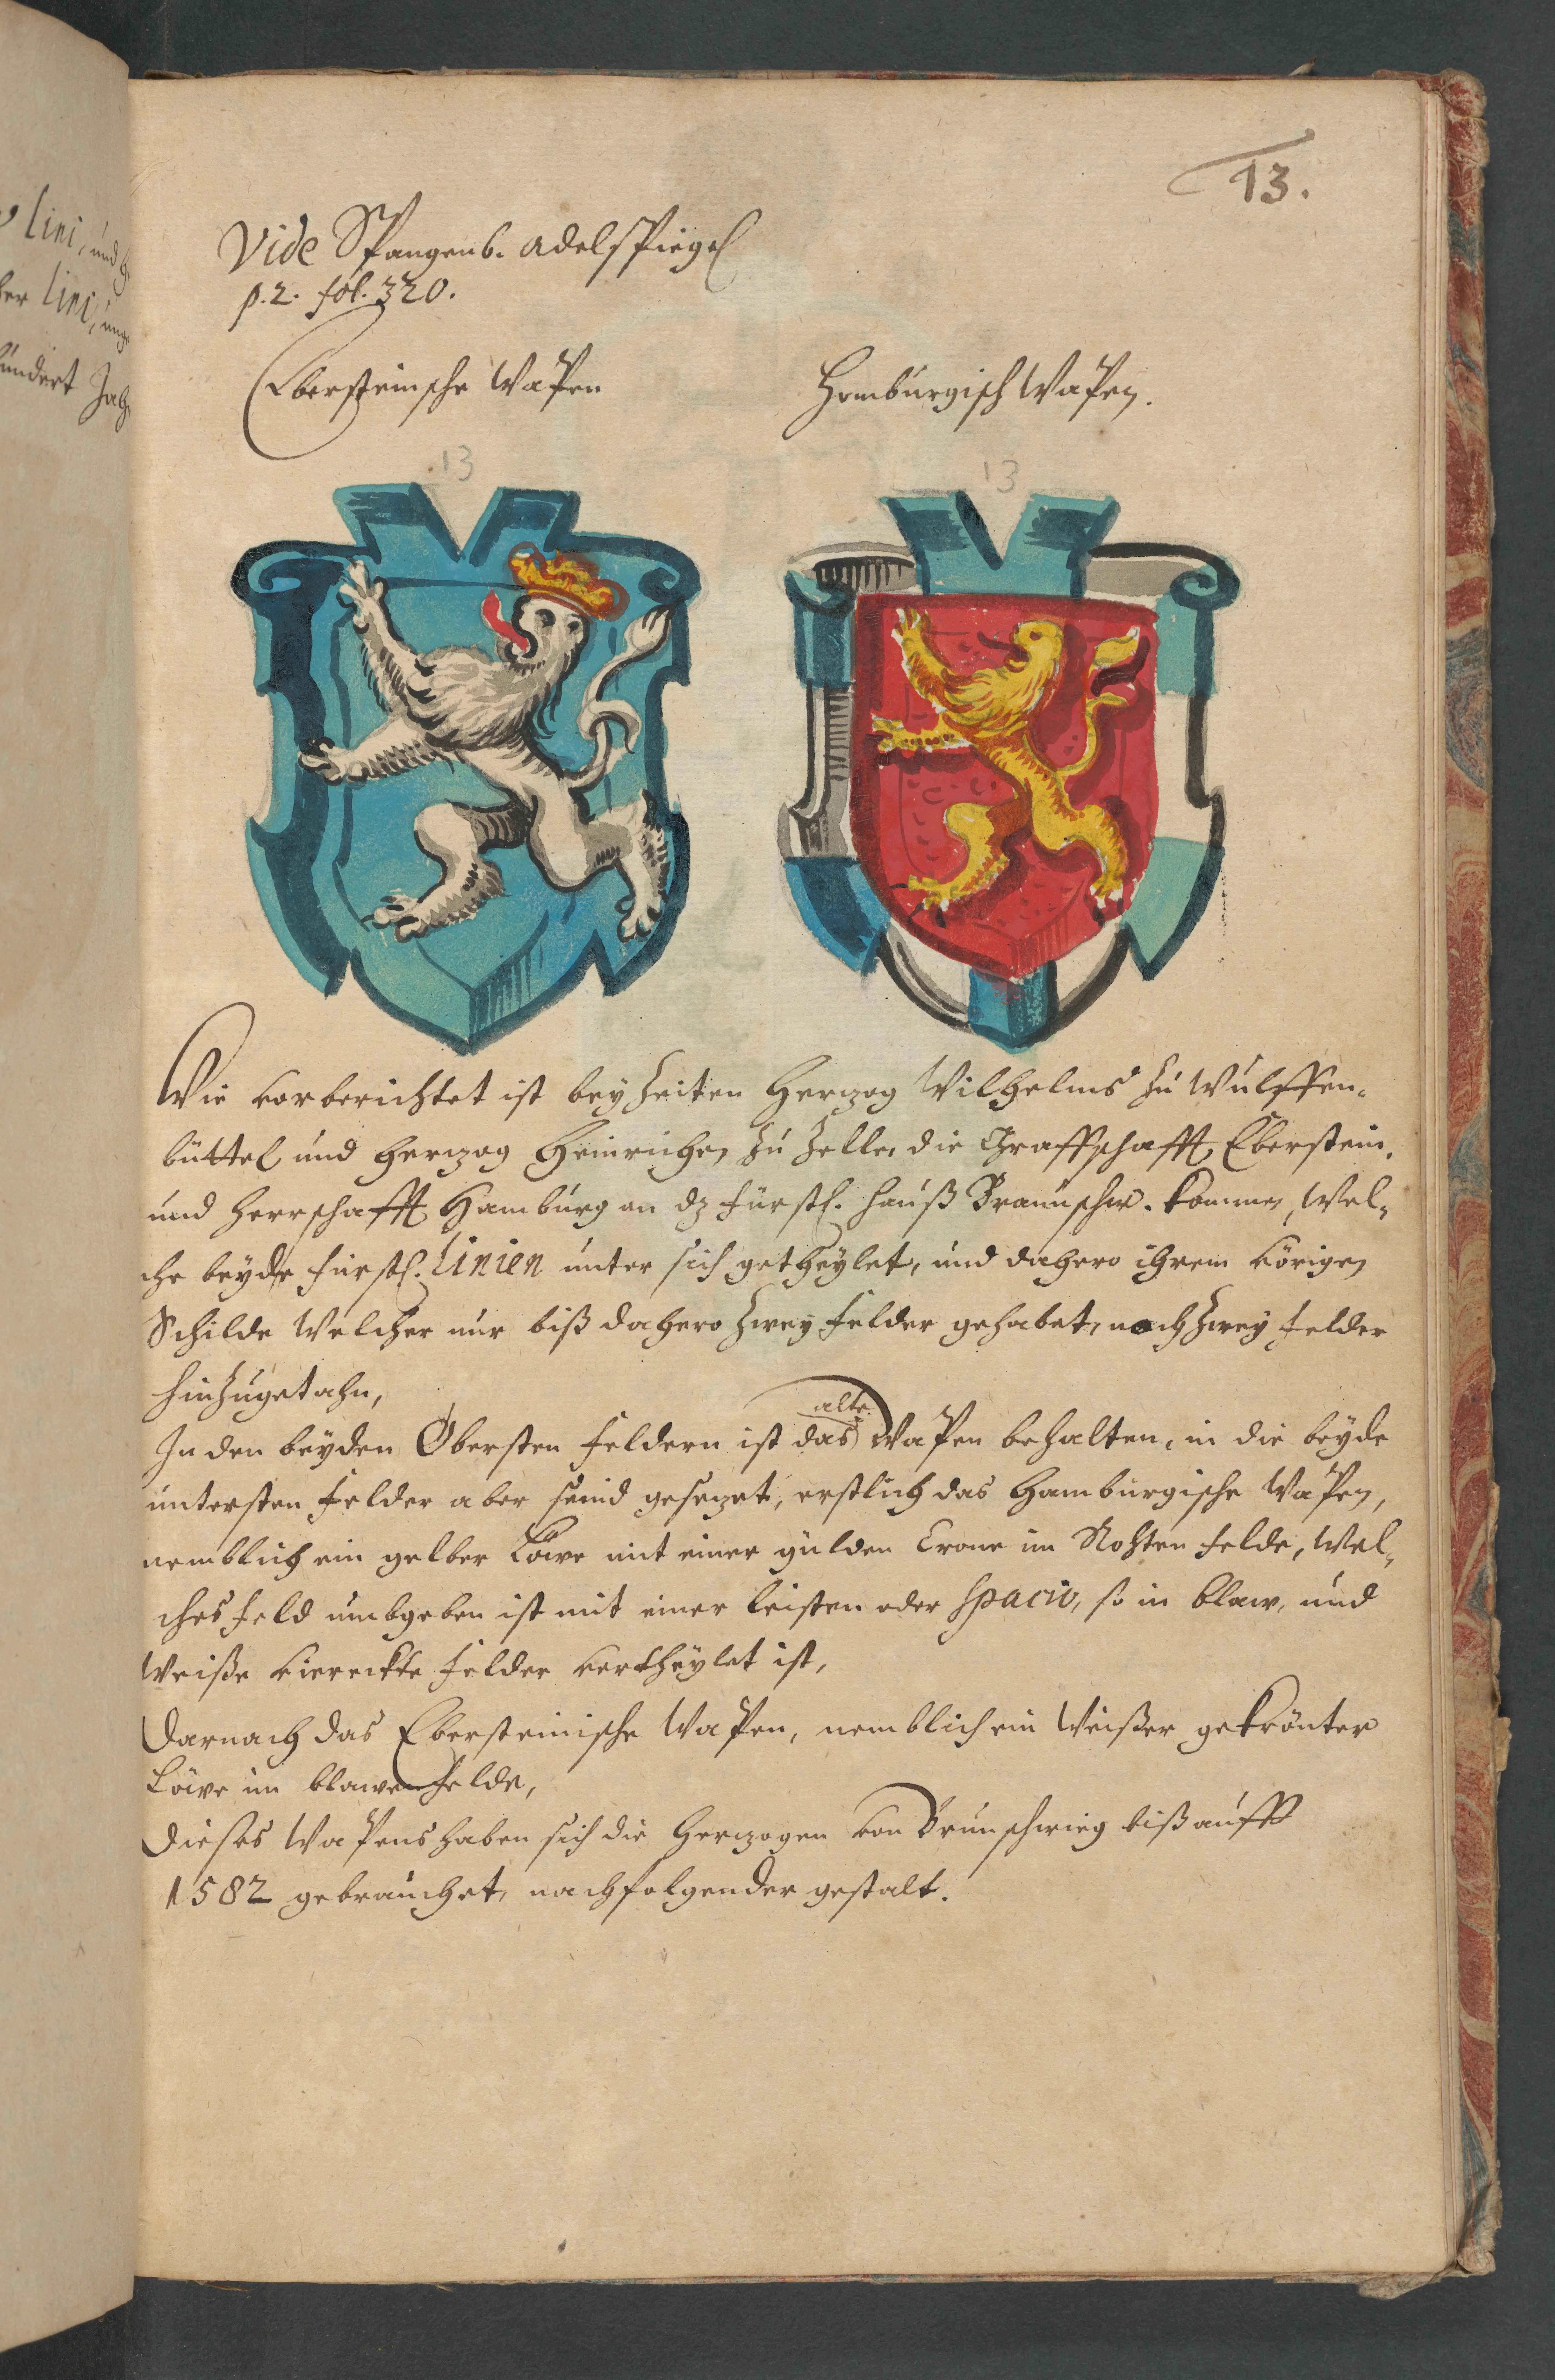 lini, und
her lini, ung
hundert Jah
13.
Vide Spangenb. Adelspiegel
p. 2. fol. 320.
Ebersteinsche Wapen
Homburgisch Wapen.
13
13
Wie vorberichtet ist bey Zeiten Herzog Wilhelms zu Wulffen-
büttel und Herzog Heinrichen zu Zelle, die Graffschafft Eberstein,
und Herrschafft Hamburg an dz Fürstl. Hauß Braunschw. kommen, wel-
che beyde Fürstl. Linien unter sich getheylet, und dahero ihrem vörigen
Schilde welcher nur biß dahero zwey Felder gehabet, noch zwey Felder
hinzugetahn,
In den beyden Obersten Feldern ist das alte Wapen behalten, in die beyde
untersten Felder aber seind gesezet, erstlich das Hamburgische Wapen,
nemblich ein gelber Löwe mit einer gulden Crone im Rohten Felde, wel-
ches Feld umbgeben ist mit einer leisten oder spacio, so in blaw, und
weiße viereckte Felder vertheylet ist,
Darnach das Ebersteinische Wapen, nemblich ein weißer gekrönter
Löwe im blawen Felde,
Dieses Wapens haben sich die Herzogen von Brunschwieg biß auff
1582 gebrauchet, nachfolgender gestalt.